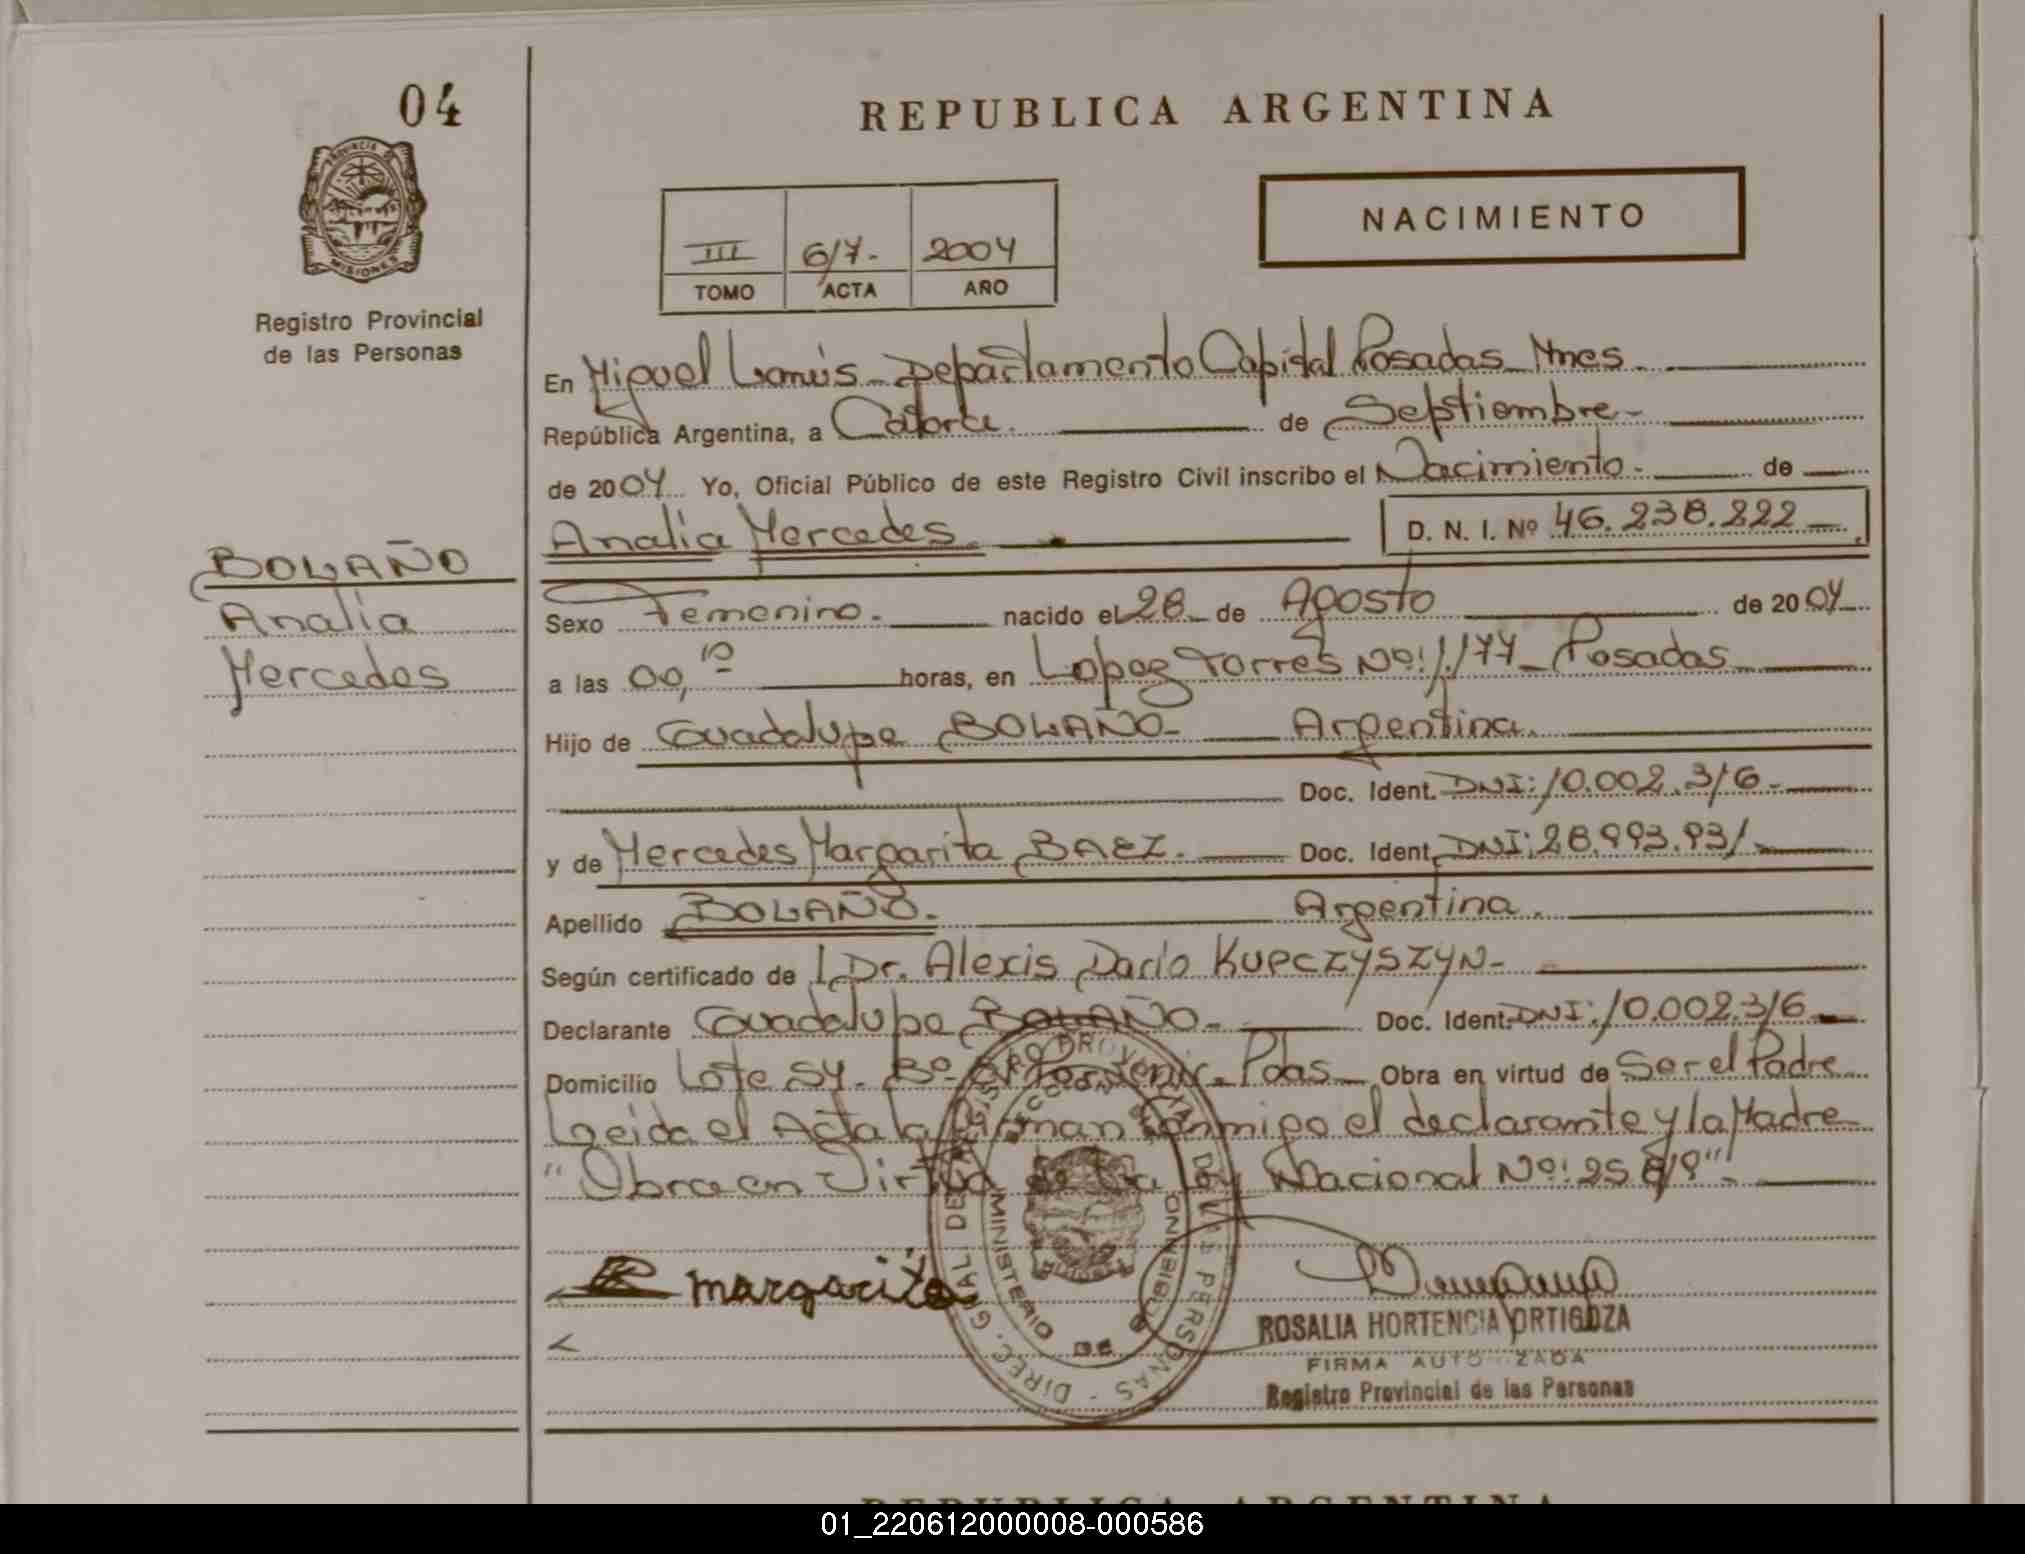 04
REPUBLICA ARGENTINA
NACIMIENTO
III 6/7. 2004
TOMO ACTA AÑO
PROVINCIA DE
MISIONES
Registro Provincial
de las Personas
En Miguel Lanús Departamento Capital Posadas Mnes
República Argentina, a Catorce de Septiembre
de 2004 Yo, Oficial Público de este Registro Civil inscribo el Nacimiento de
Analia Mercedes D. N. I. Nº 46.238.222
BOLAÑO
Analia
Mercedes
Sexo Femenino. nacido el 28 de Agosto de 2004
a las 00,10 horas, en Lopez Torres Nº:1.177 Posadas
Hijo de Guadalupe BOLAÑO Argentina.
Doc. Ident. DNI:10.002.316
y de Mercedes Margarita BAEZ. Doc. Ident. DNI:28.993.931.
Apellido BOLAÑO. Argentina.
Según certificado de l Dr. Alexis Darío KUPCZYSZYN
Declarante Guadalupe BOLAÑO Doc. Ident. DNI:10.002.316
Domicilio Lote 54. Bº El Porvenir. Pdas Obra en virtud de Ser el Padre
Leida el Acta la firman conmigo el declarante y la Madre
"Obra en Virtud de la Ley Nacional Nº: 25.819"
margarita
DIREC. GRAL DEL REGISTRO PROVINCIAL DE LAS PERSONAS
MINISTERIO DE GOBIERNO
ROSALIA HORTENCIA ORTIGOZA
FIRMA AUTORIZADA
Registro Provincial de las Personas
REPUBLICA ARGENTINA
01_220612000008-000586